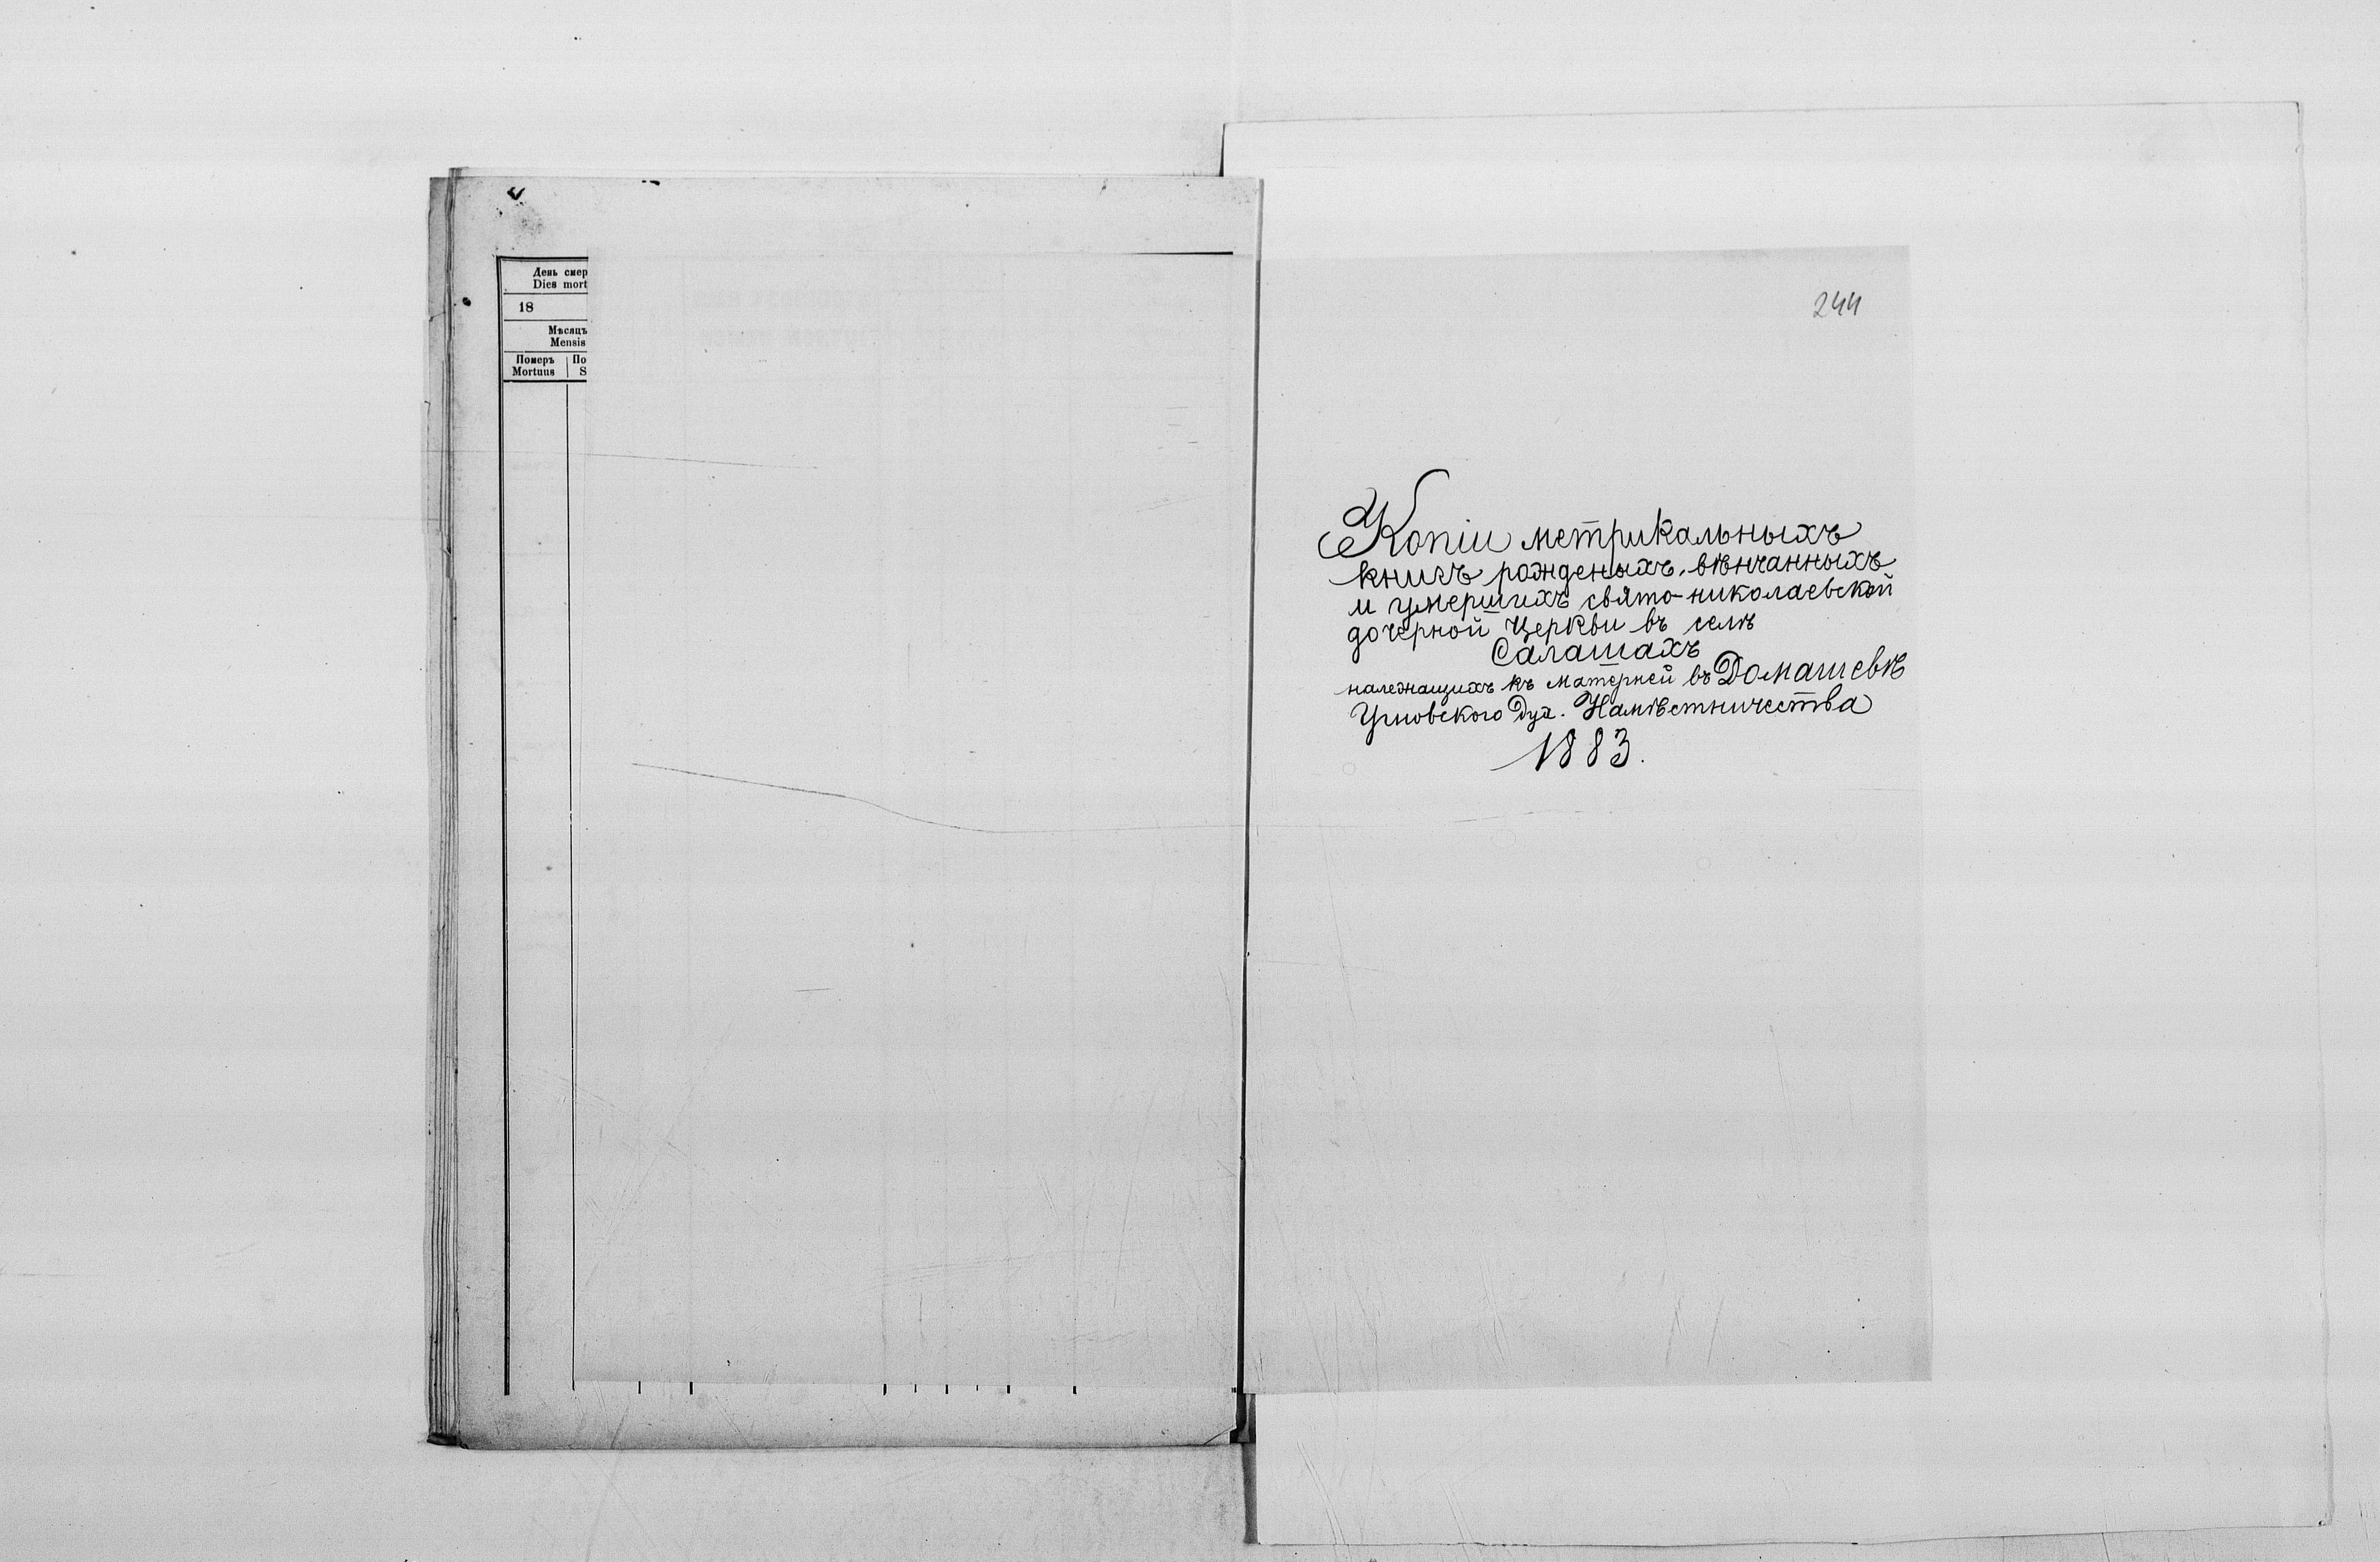 День смер
Dies mort
18
Мѣсяцъ
Mensis
Померъ По
Mortuus S
244
Копіи метрикальныхъ
книгъ рожденыхъ, вѣнчанныхъ
и умершихъ свято-николаевской
дочерной Церкви въ селѣ
Салашахъ
належащихъ къ матерней въ Домашевѣ
Угновского Дух. Намѣстничества
1883.